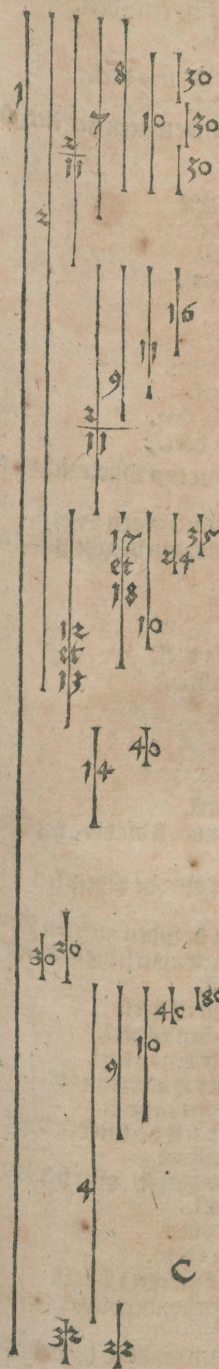 1
2
2
11
7
8
10
30
30
30
2
11
9
11
16
12
et
13
17
et
18
10
24
35
14
40
30
20
4
9
10
40
80
C
32
22